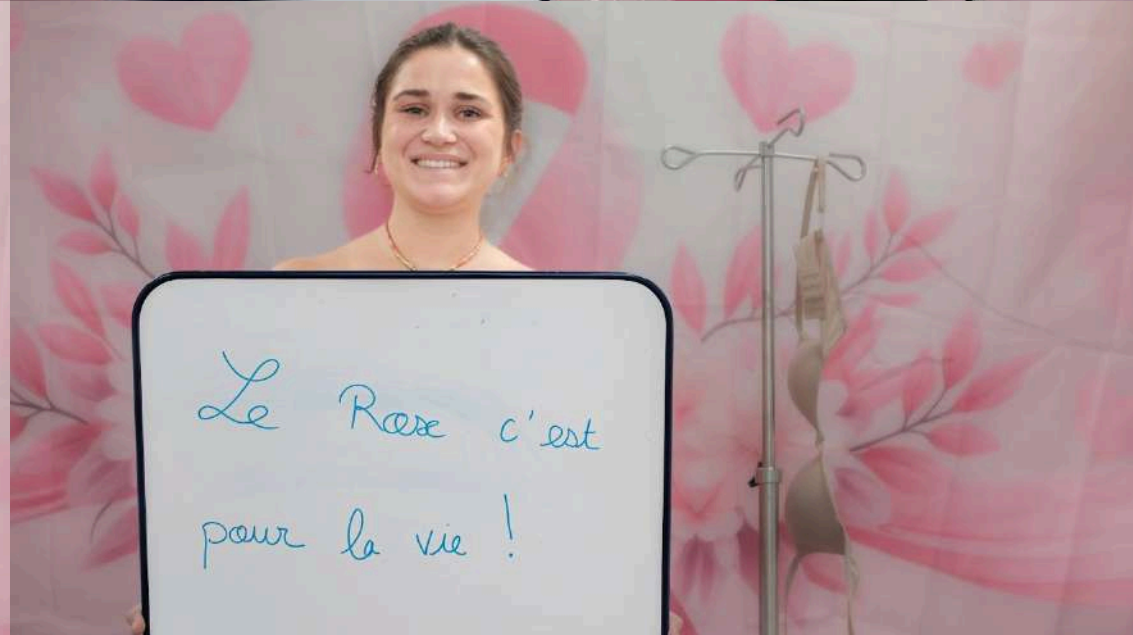 Le Rose c'est
pour la vie !